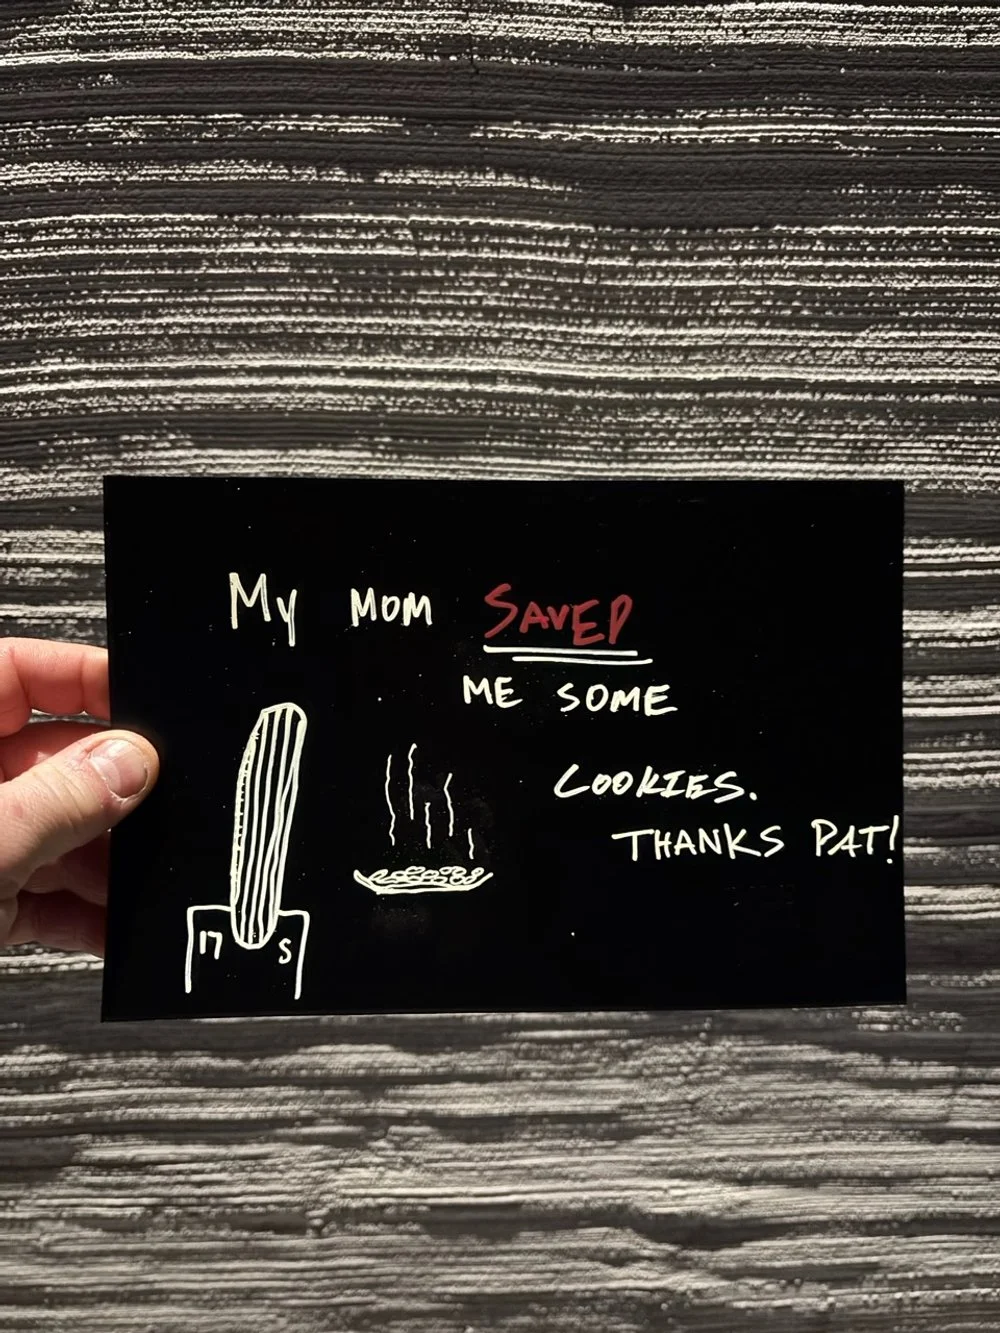 My MOM SAVED
ME SOME
COOKIES.
THANKS PAT!
17 S